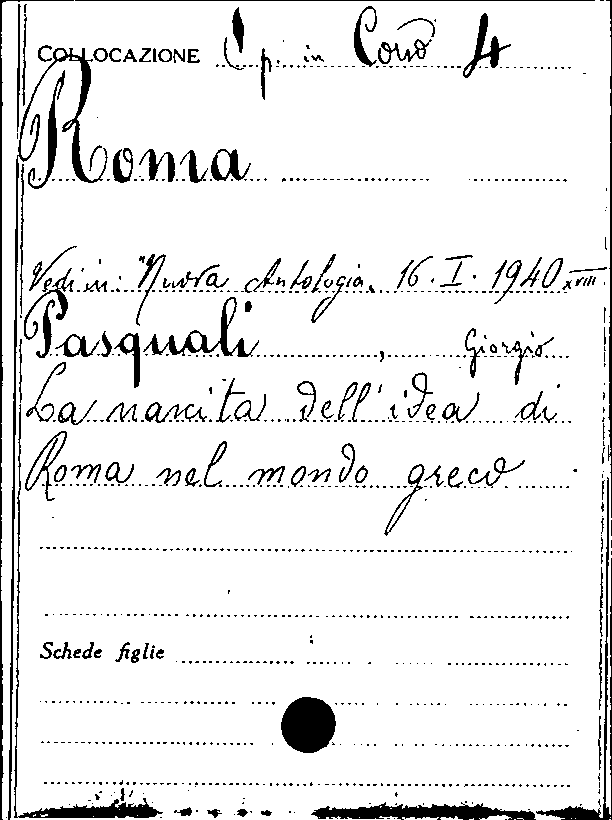 COLLOCAZIONE p. in Corso 4
Roma
Vedi in: "Nuova Antologia, 16.I.1940 XVIII
Pasquali, Giorgio
La nascita dell'idea di
Roma nel mondo greco
Schede figlie